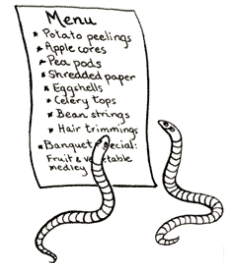 Menu
* Potato peelings
* Apple cores
* Pea pods
* Shredded paper
* Eggshells
* Celery tops
* Bean strings
* Hair trimmings
* Banquet
Fruit &
medley